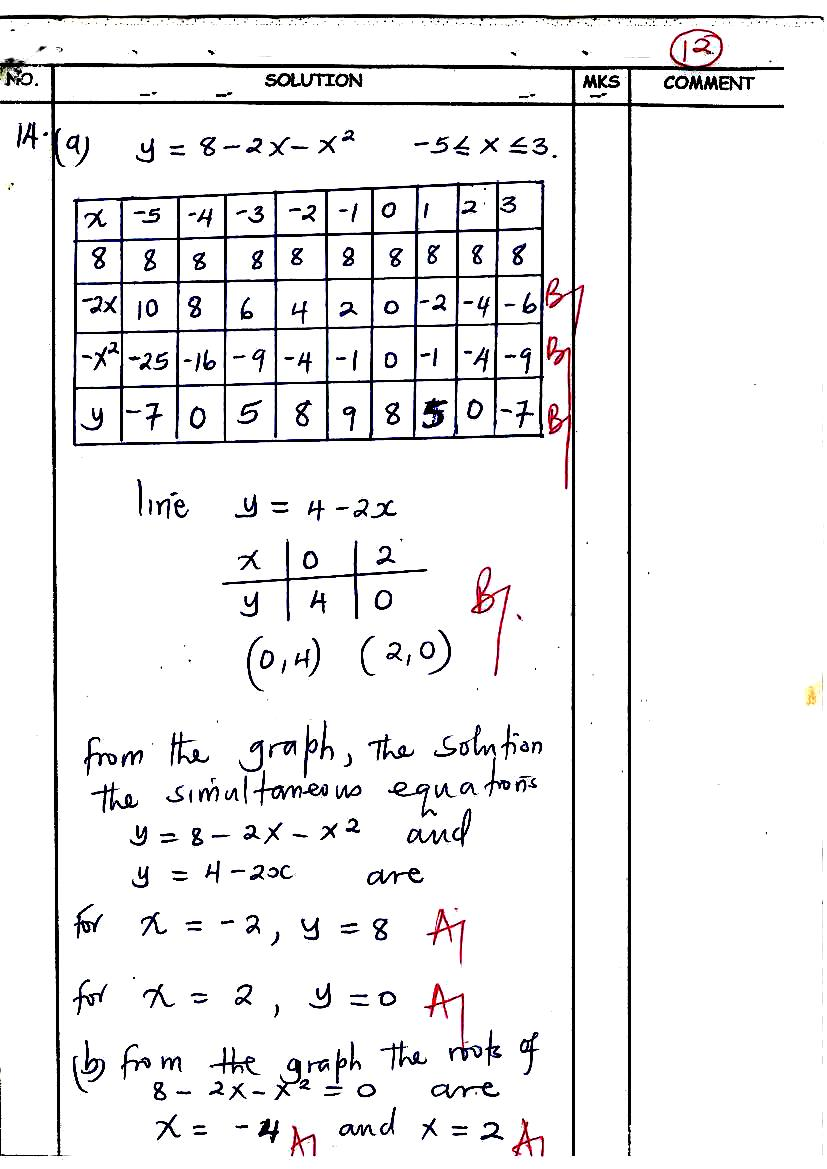 12
NO. SOLUTION MKS COMMENT
14. (a) y = 8 - 2x - x² -5 ≤ x ≤ 3.
x -5 -4 -3 -2 -1 0 1 2 3
8 8 8 8 8 8 8 8 8 8
-2x 10 8 6 4 2 0 -2 -4 -6 B1
-x² -25 -16 -9 -4 -1 0 -1 -4 -9 B1
y -7 0 5 8 9 8 5 0 -7 B1
line y = 4 - 2x
x 0 2
y 4 0 B1.
(0,4) (2,0)
from the graph, the solution
the simultaneous equations
y = 8 - 2x - x² and
y = 4 - 2x are
for x = -2, y = 8 A1
for x = 2, y = 0 A1
(b) from the graph the roots of
8 - 2x - x² = 0 are
x = -4 A1 and x = 2 A1